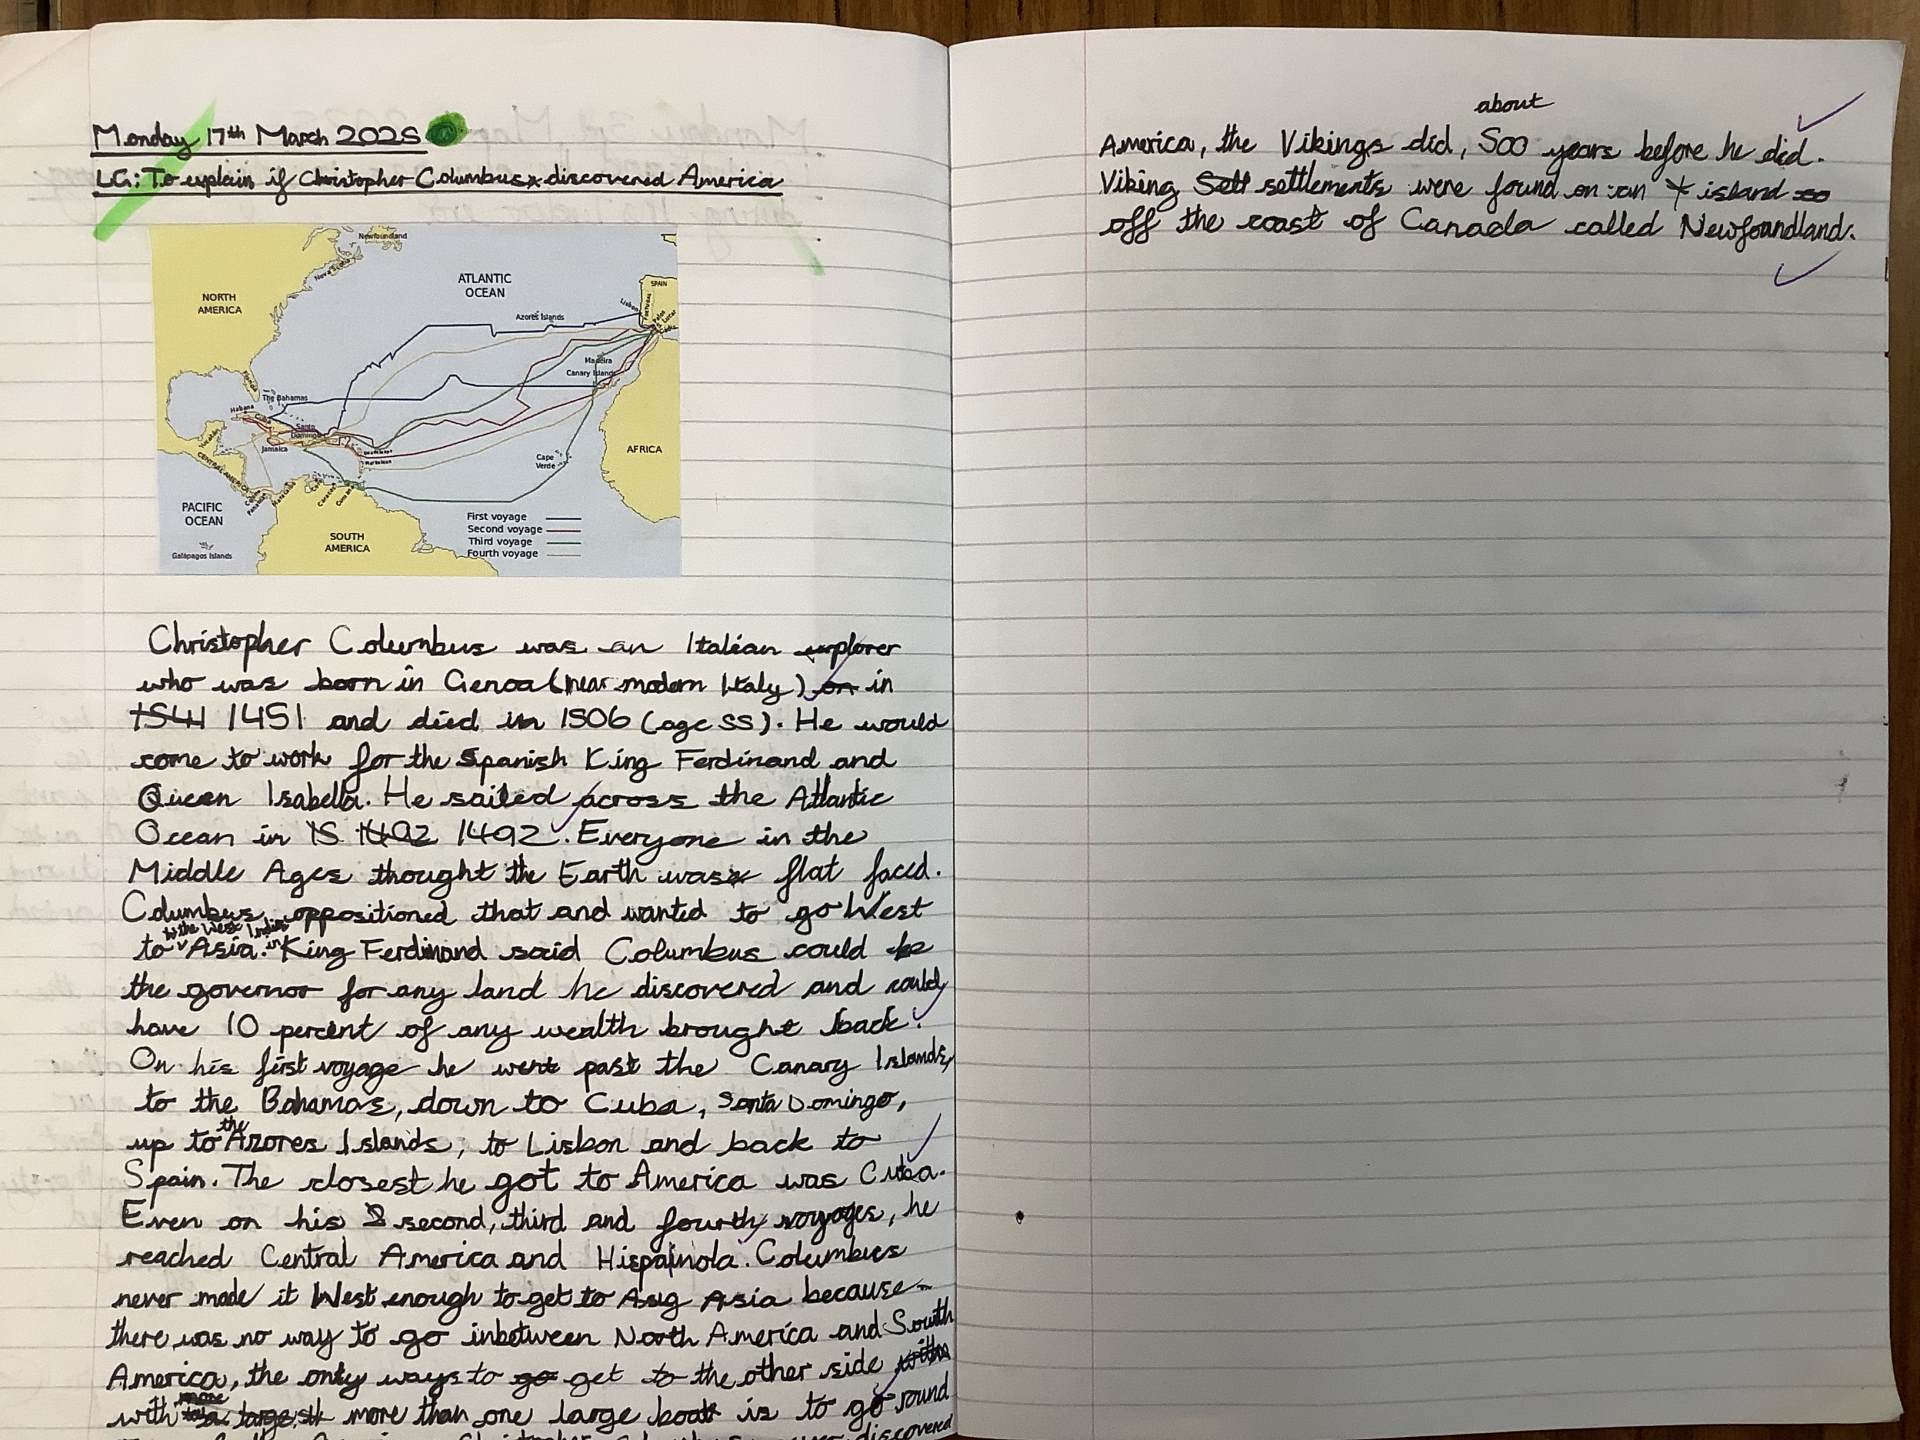 Monday 17th March 2025
LG: To explain if Christopher Columbus discovered America
Newfoundland
Nova Scotia
NORTH
AMERICA
ATLANTIC
OCEAN
SPAIN
PORTUGAL
Lisbon
Palos
Cadiz
Azores Islands
Madeira
Canary Islands
Florida
The Bahamas
Habana
Cuba
Santo
Domingo
Jamaica
Yucatán
CENTRAL AMERICA
Cape
Verde
AFRICA
PACIFIC
OCEAN
Galápagos Islands
SOUTH
AMERICA
First voyage
Second voyage
Third voyage
Fourth voyage
Christopher Columbus was an Italian explorer
who was born in Genoa (near modern Italy) on in
1541 1451 and died in 1506 (age 55). He would
come to work for the Spanish King Ferdinand and
Queen Isabella. He sailed across the Atlantic
Ocean in 15 1402 1492. Everyone in the
Middle Ages thought the Earth was flat faced.
Columbus oppositioned that and wanted to go West
to the West Indies in
to Asia. King Ferdinand said Columbus could be
the governor for any land he discovered and could
have 10 percent of any wealth brought back.
On his first voyage he went past the Canary Islands,
to the Bahamas, down to Cuba, Santa Domingo,
up to the Azores Islands, to Lisbon and back to
Spain. The closest he got to America was Cuba.
Even on his 2 second, third and fourth voyages, he
reached Central America and Hispainola. Columbus
never made it West enough to get to Asig Asia because
there was no way to go inbetween North America and South
America, the only ways to go get to the other side with
with more than one large boat is to go round
discovered
about
America, the Vikings did, 500 years before he did.
Viking Sett settlements were found on an island so
off the coast of Canada called Newfoandland.